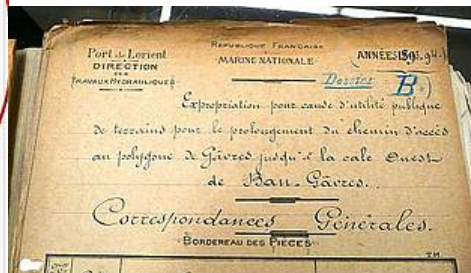 Port de Lorient
DIRECTION
DES
TRAVAUX HYDRAULIQUES
RÉPUBLIQUE FRANÇAISE
MARINE NATIONALE
ANNÉES 1893.94
Dossier B
Expropriation pour cause d'utilité publique
de terrains pour le prolongement du chemin d'accès
au polygone de Gâvres jusqu'à la cale Ouest
de Ban-Gâvres.
Correspondances Générales.
BORDEREAU DES PIÈCES